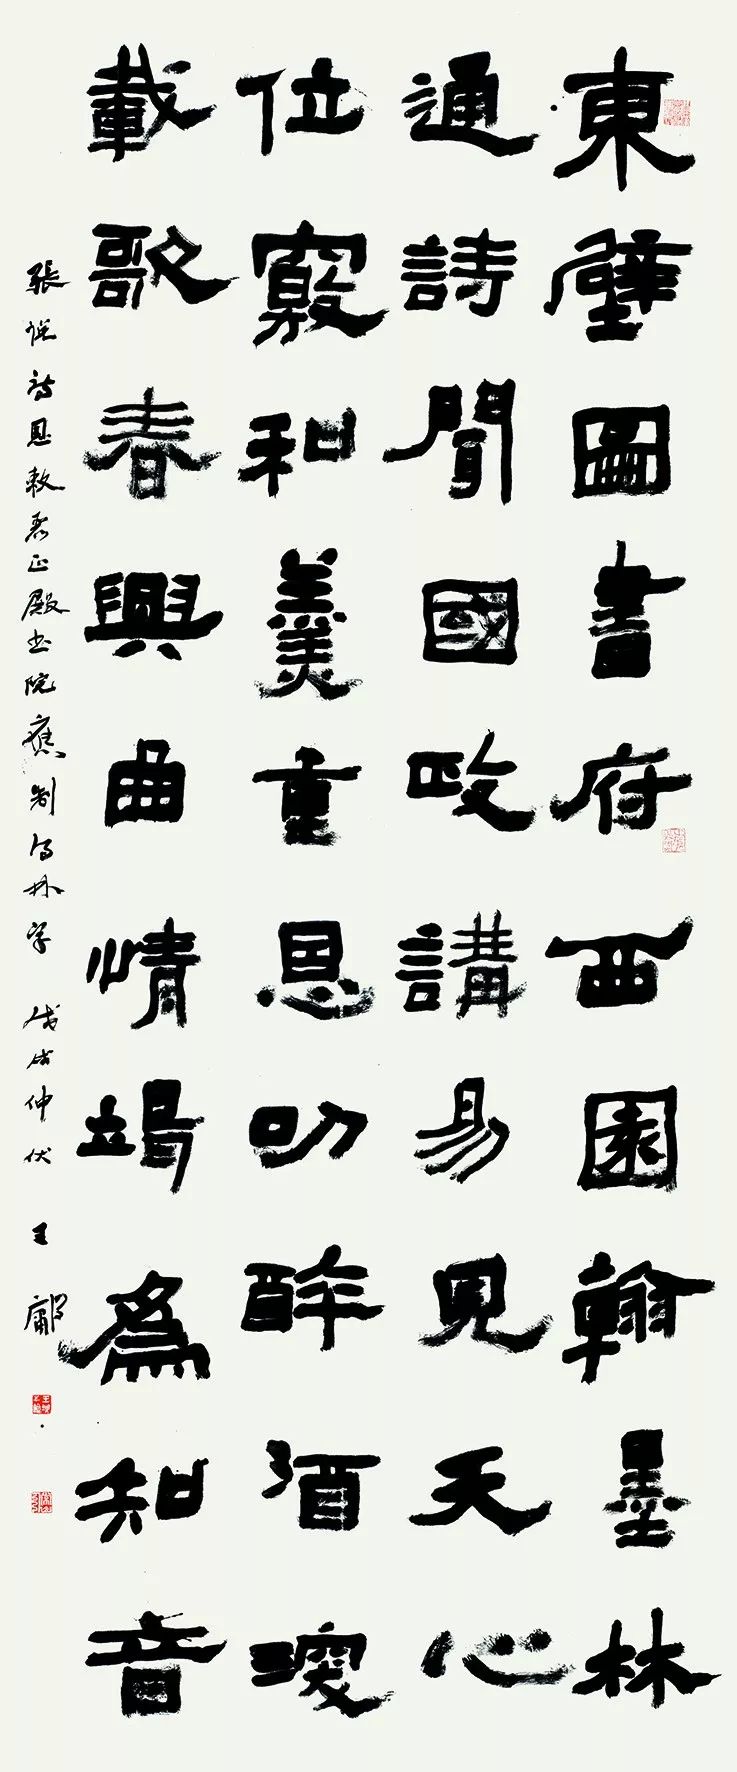 東壁圖書府西園翰墨林
通詩聞國政講易見天心
位竊和羹重恩叨醉酒深
載歌春興曲情竭爲知音
張说诗恩敕丽正殿书院應制得林字 戊戌仲伏 王鄘